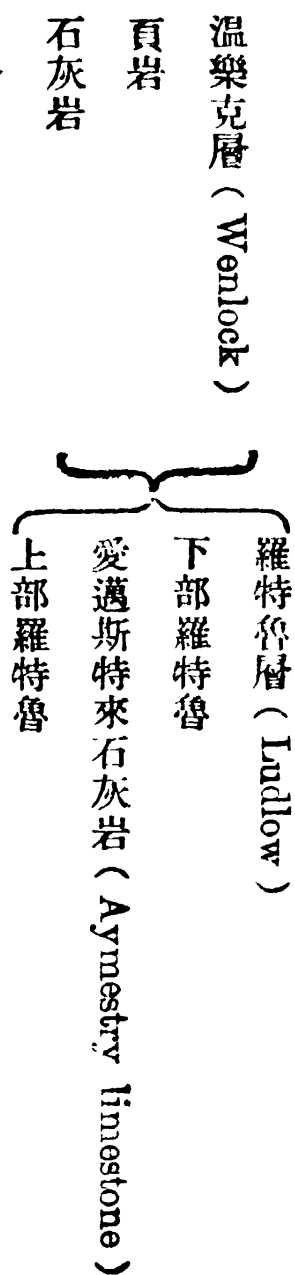 溫樂克層(Wenlock)
頁岩
石灰岩
羅特魯層(Ludlow)
下部羅特魯
愛邁斯特來石灰岩(Aymestry limestone)
上部羅特魯